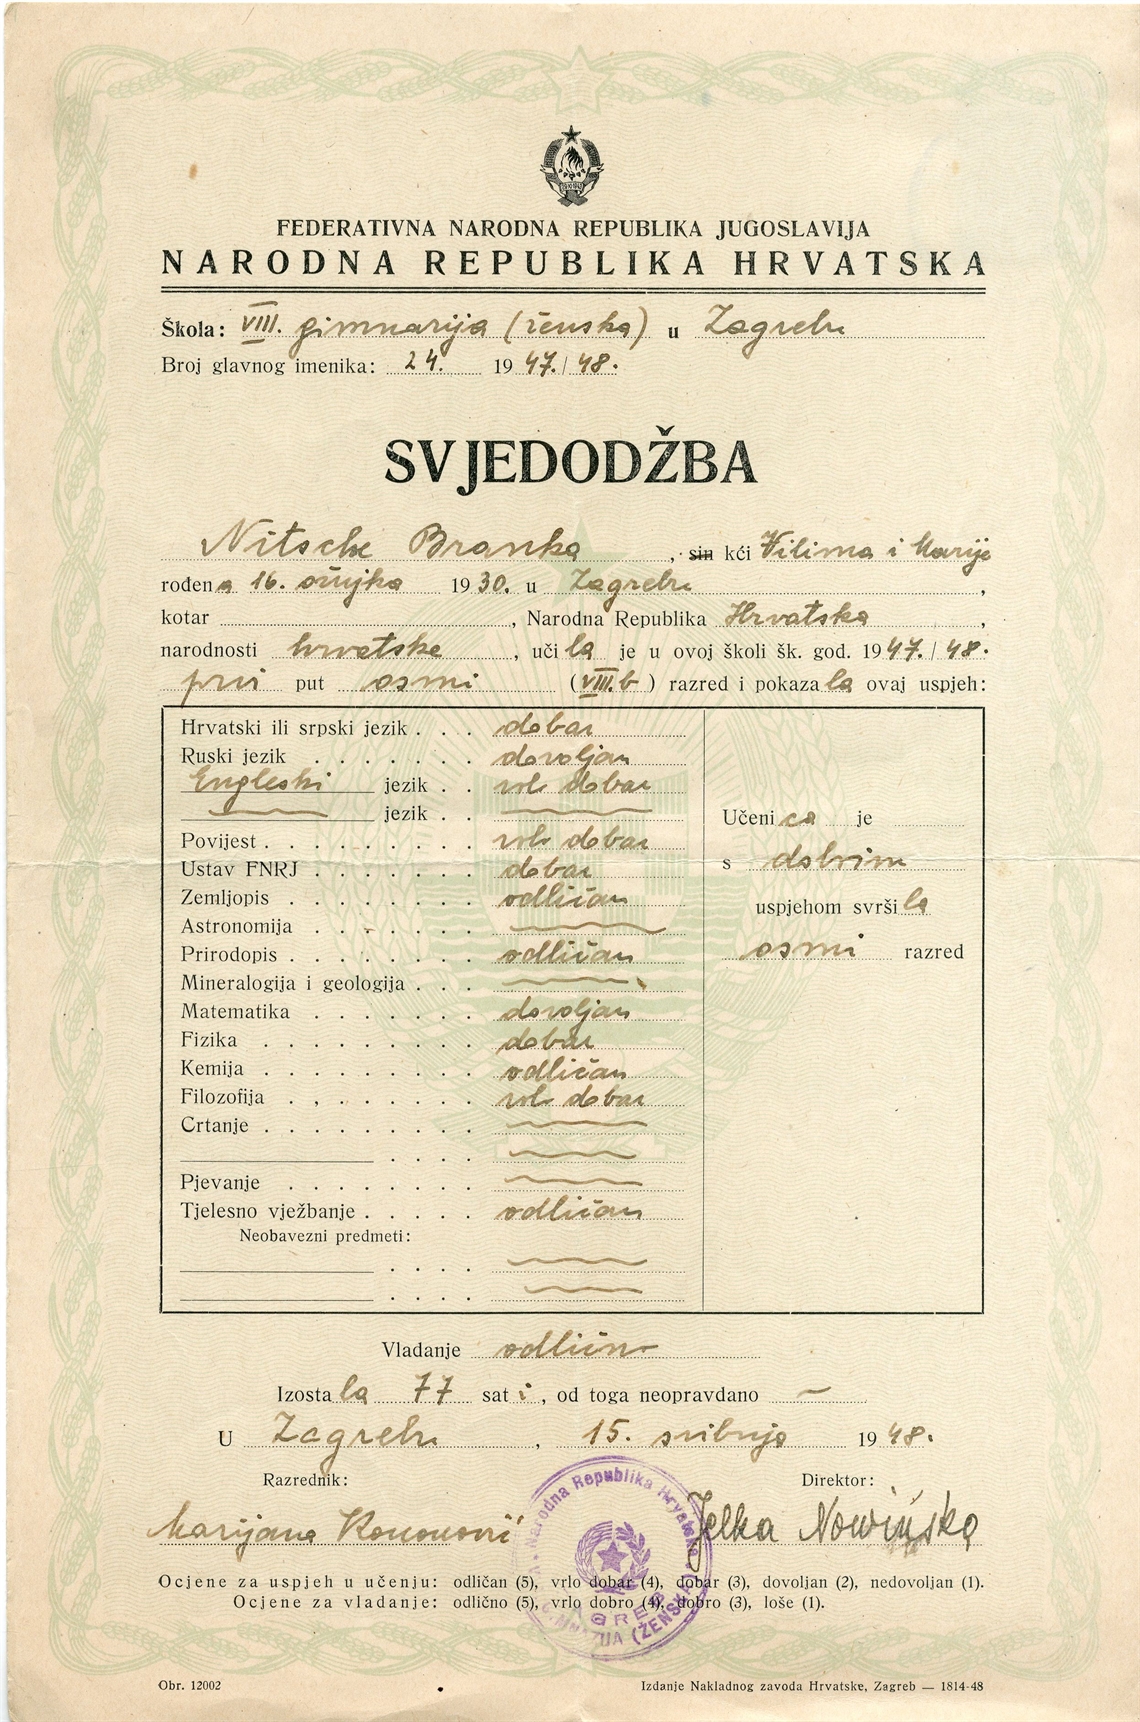 FEDERATIVNA NARODNA REPUBLIKA JUGOSLAVIJA
NARODNA REPUBLIKA HRVATSKA
Škola: VIII. gimnazija (ženska) u Zagrebu
Broj glavnog imenika: 24. 1947./48.
SVJEDODŽBA
Nitsche Branka, sin kći Vilima i Marije
rođena 16. ožujka 1930. u Zagrebu,
kotar , Narodna Republika Hrvatska,
narodnosti hrvatske, učila je u ovoj školi šk. god. 1947./48.
prvi put osmi (VIII.b) razred i pokazala ovaj uspjeh:
Hrvatski ili srpski jezik . . . dobar
Ruski jezik . . . . . . . dovoljan
Engleski jezik . . vrlo dobar
jezik . .
Povijest . . . . . . . . . vrlo dobar
Ustav FNRJ . . . . . . . dobar
Zemljopis . . . . . . . . odličan
Astronomija . . . . . . .
Prirodopis . . . . . . . . odličan
Mineralogija i geologija . . .
Matematika . . . . . . . dovoljan
Fizika . . . . . . . . . dobar
Kemija . . . . . . . . . odličan
Filozofija . . . . . . . . vrlo dobar
Crtanje . . . . . . . . .
Pjevanje . . . . . . . .
Tjelesno vježbanje . . . . . odličan
Neobavezni predmeti:
Učenica je
s dobrim
uspjehom svršila
osmi razred
Vladanje odlično
Izostala 77 sati, od toga neopravdano —
U Zagrebu, 15. svibnja 1948.
Razrednik:
Direktor:
Marijana
Jelka Nowińska
Narodna Republika Hrvatska
ZAGREB
GIMNAZIJA (ŽENSKA)
Ocjene za uspjeh u učenju: odličan (5), vrlo dobar (4), dobar (3), dovoljan (2), nedovoljan (1).
Ocjene za vladanje: odlično (5), vrlo dobro (4), dobro (3), loše (1).
Obr. 12002
Izdanje Nakladnog zavoda Hrvatske, Zagreb — 1814-48